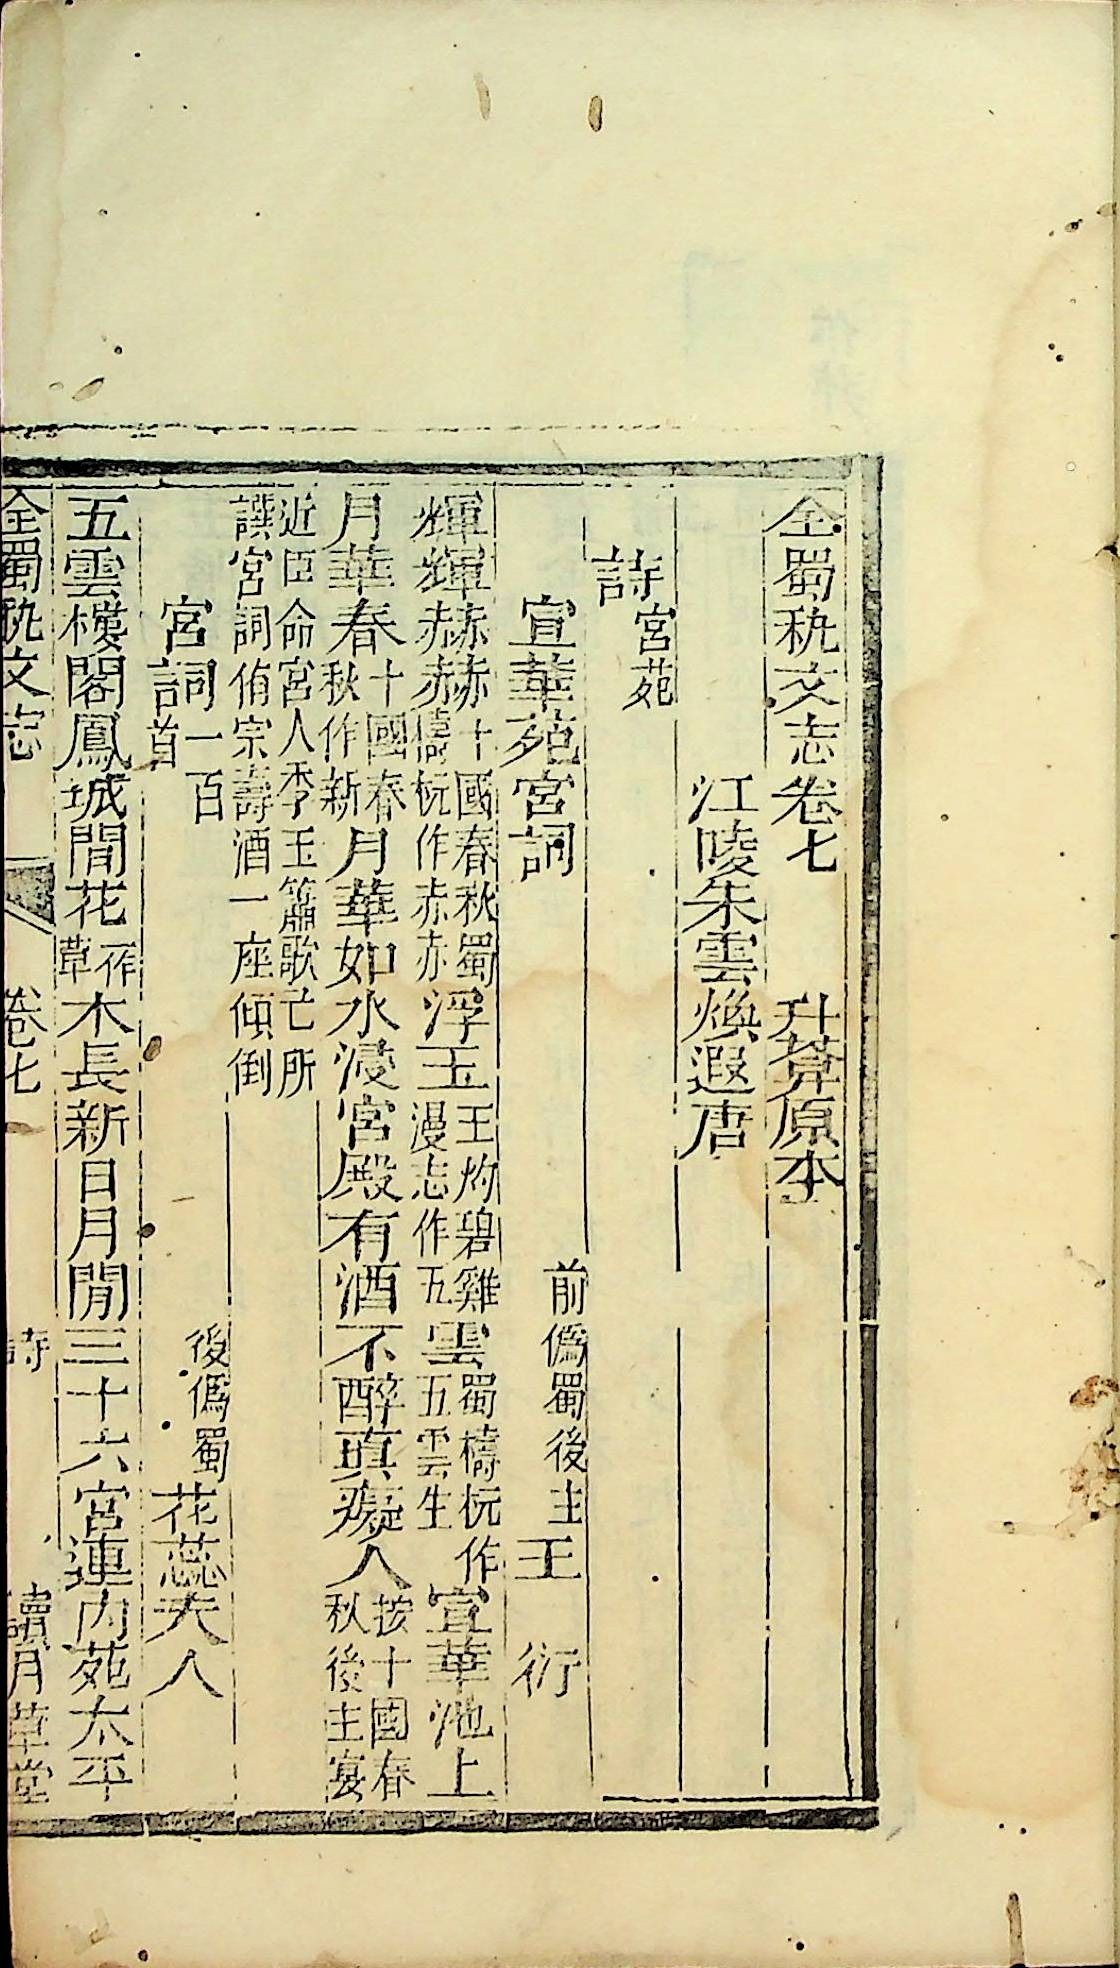 全蜀秇文志卷七　升菴原本
江陵朱雲煥遐唐
詩宮苑
宣華苑宮詞　前僞蜀後主王　衍
輝輝赫赫十國春秋蜀檮杌作赤赤浮玉王灼碧雞漫志作五雲蜀檮杌作五雲生宣華池上
月華春十國春秋作新月華如水浸宮殿有酒不醉眞癡人按十國春秋後主宴
近臣命宮人李玉簫歌亡所
譔宮詞侑宗壽酒一座傾倒
宮詞一百首　後僞蜀花蕊夫人
五雲樓閣鳳城閒花一作草木長新日月閒三十六宮連內苑太平
全蜀秇文志　卷七　詩　讀月草堂